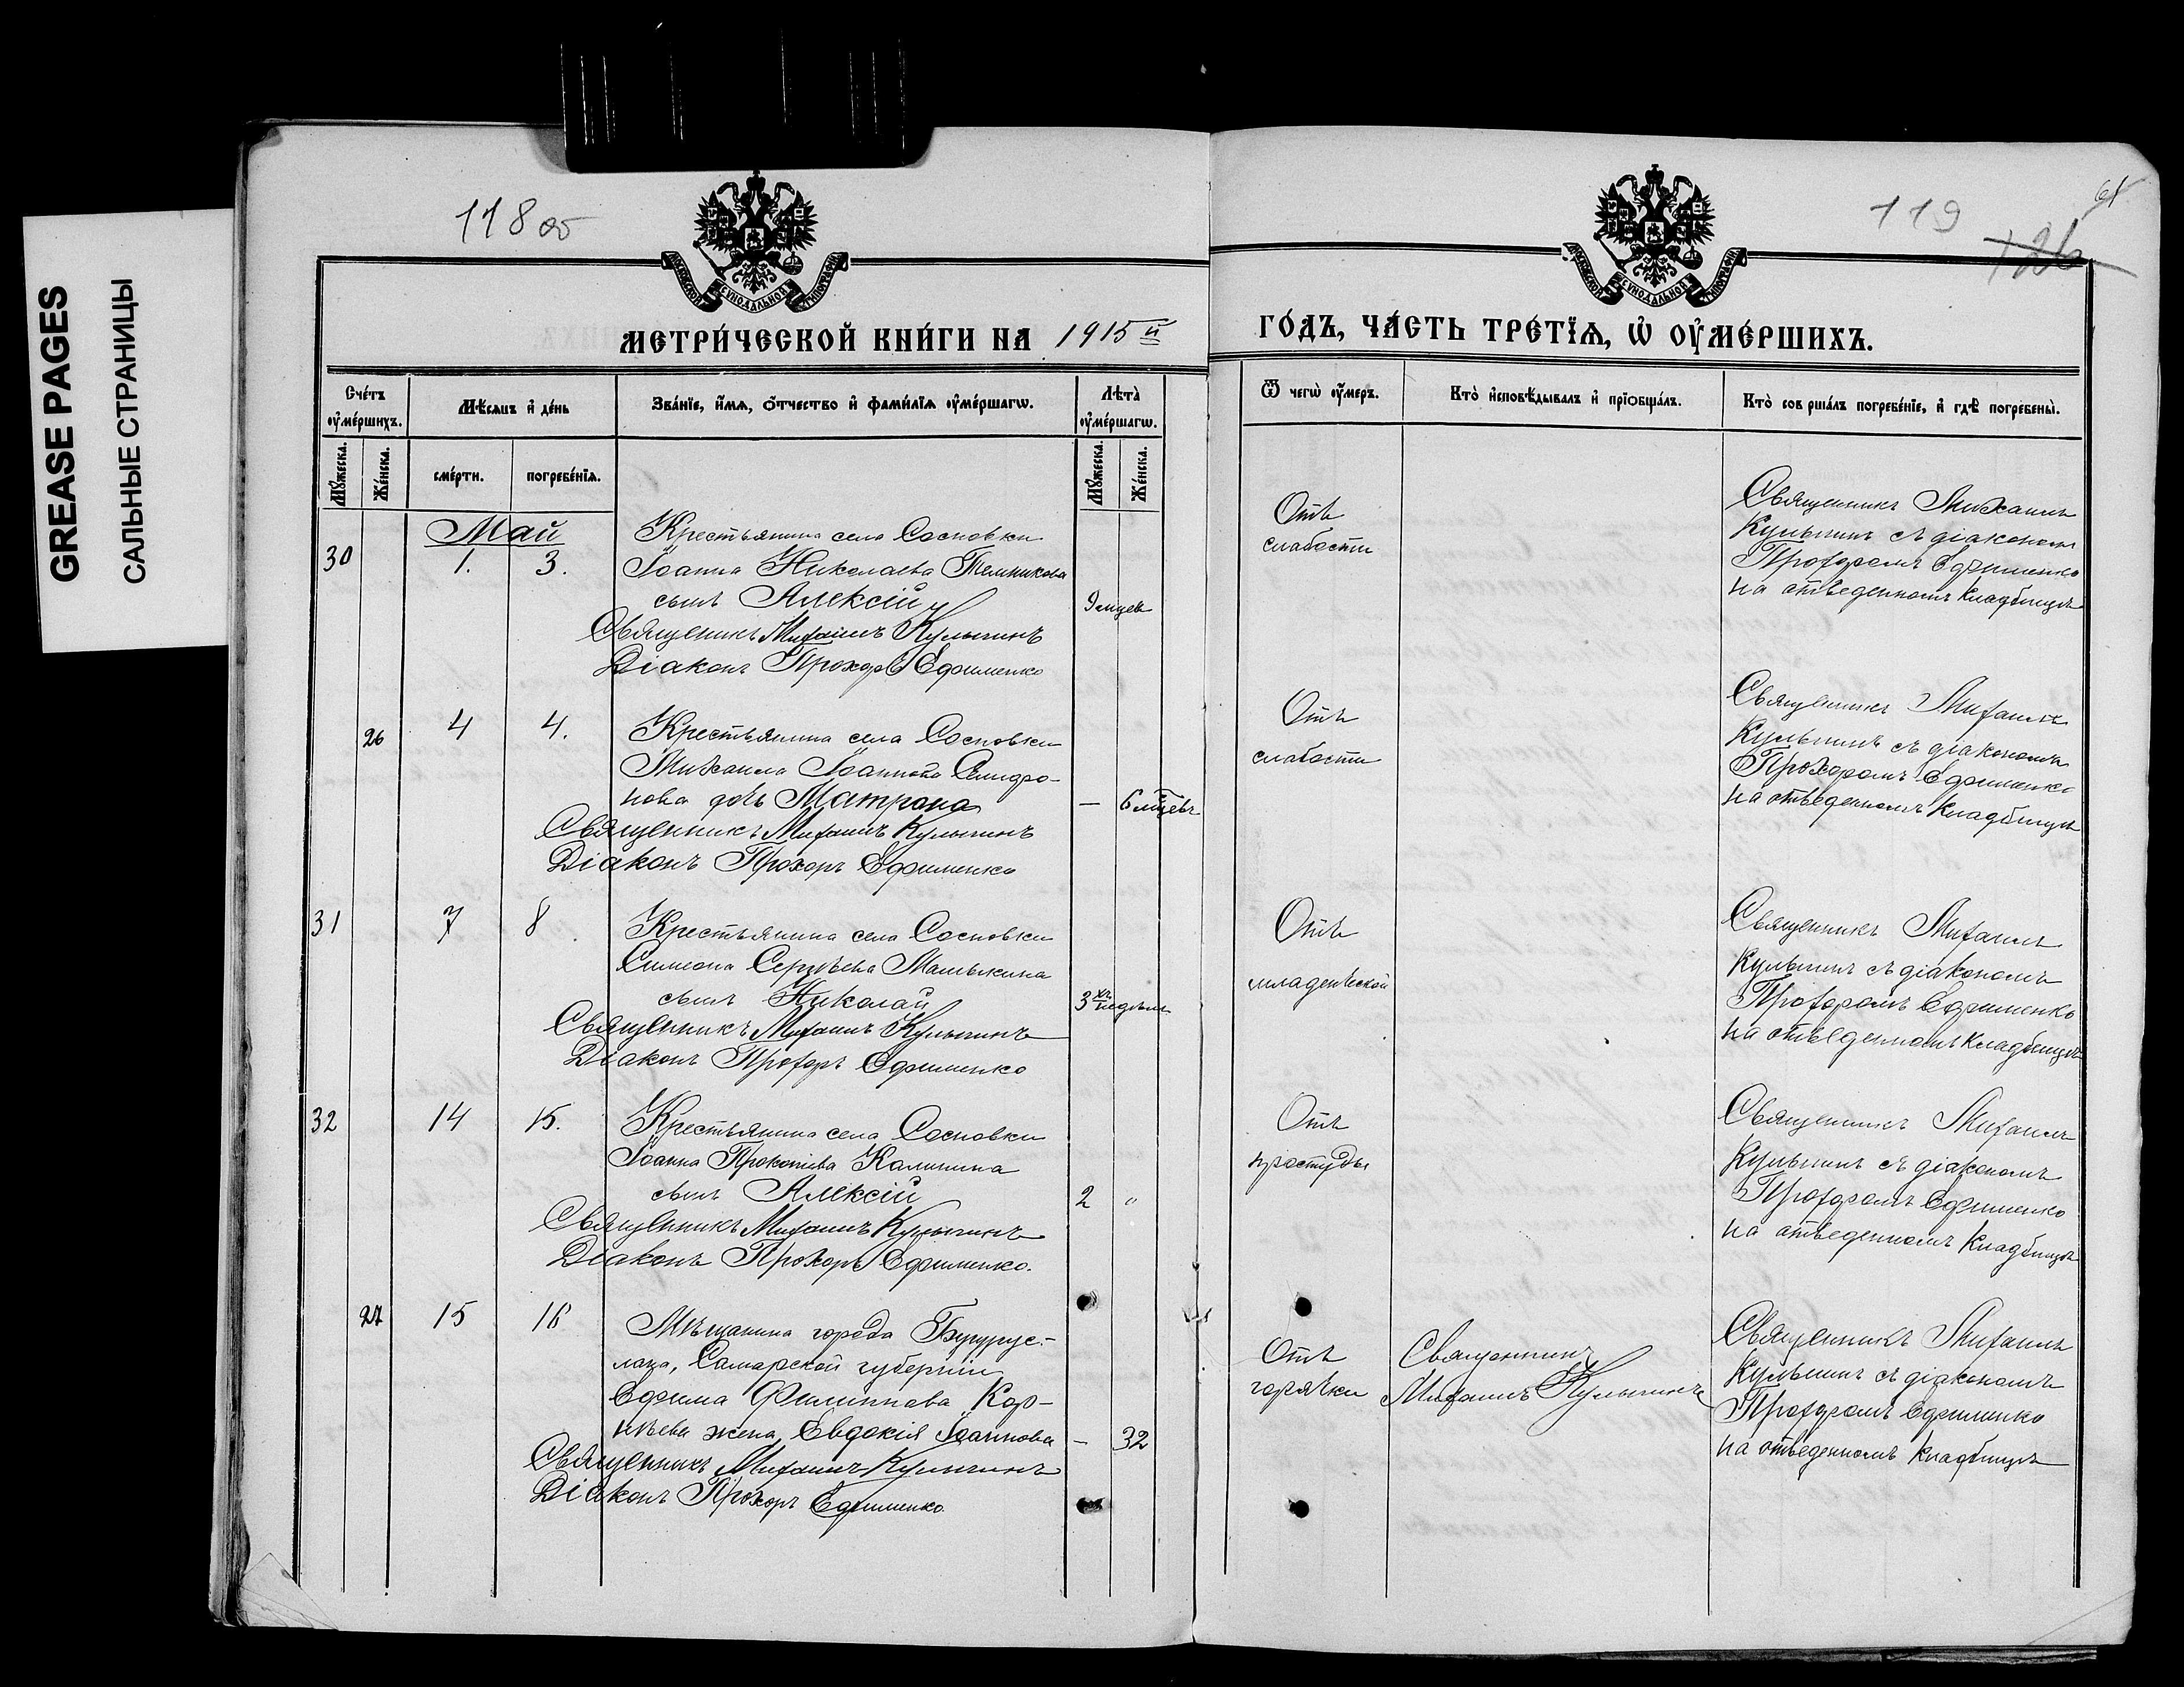 GREASE PAGES
САЛЬНЫЕ СТРАНИЦЫ
118 об
МЕТРИ́ЧЕСКОЙ КНИ́ГИ НА 1915 й
Сче́тъ ᲂу҆ме́ршихъ.
Мꙋ́жеска.
Же́нска.
Мѣ́сѧцъ и҆ де́нь
сме́рти.
погребе́нїѧ.
Зва́нїе, и҆́мѧ, ѻ҆́тчество и҆ фами́лїѧ ᲂу҆ме́ршагѡ.
Лѣта̀ ᲂу҆ме́ршагѡ.
Мꙋ́жеска.
Же́нска.
Май
30
1.
3.
Крестьянина села Сосновки
Іоанна Николаева Темникова
сынъ Алексій
9 мцев
Священникъ Михаилъ Кулыгинъ
Діаконъ Прохоръ Ефименко
26
4
4.
Крестьянина села Сосновки
Михаила Іоаннова
дочь Матрона
— 6 мцевъ
Священникъ Михаилъ Кулыгинъ
Діаконъ Прохоръ Ефименко
31
7
8
Крестьянина села Сосновки
Симеона Сергѣева Малыкина
сынъ Николай
3хъ недѣль
Священникъ Михаилъ Кулыгинъ
Діаконъ Прохоръ Ефименко
32
14
15.
Крестьянина села Сосновки
Іоанна Прокопіева Калинина
сынъ Алексій
2 "
Священникъ Михаилъ Кулыгинъ
Діаконъ Прохоръ Ефименко.
27
15
16
Мѣщанина города Бугурус-
лана, Самарской губерніи
Ефима Филиппова Кор-
нѣева жена Евдокія Іоаннова
— 32
Священникъ Михаилъ Кулыгинъ
Діаконъ Прохоръ Ефименко
119
61
126
ГО́ДЪ, ЧА́СТЬ ТРЕ́ТЇѦ, Ѡ҆ ОУ҆МЕ́РШИХЪ.
Ѿ чегѡ̀ ᲂу҆́меръ.
Кто̀ и҆сповѣ́дывалъ и҆ прїѡбща́лъ.
Кто̀ сов рша́лъ погребе́нїе, и҆ гдѣ̀ погребены̀.
Отъ
слабости
Священникъ Михаилъ
Кулыгинъ съ діакономъ
Прохоромъ Ефименко
на отведенномъ кладбищѣ
Отъ
слабости
Священникъ Михаилъ
Кулыгинъ съ діакономъ
Прохоромъ Ефименко
на отведенномъ кладбищѣ
Отъ
младенческой
Священникъ Михаилъ
Кулыгинъ съ діакономъ
Прохоромъ Ефименко
на отведенномъ кладбищѣ
Отъ
простуды
Священникъ Михаилъ
Кулыгинъ съ діакономъ
Прохоромъ Ефименко
на отведенномъ кладбищѣ
Отъ
горячки
Священникъ
Михаилъ Кулыгинъ
Священникъ Михаилъ
Кулыгинъ съ діакономъ
Прохоромъ Ефименко
на отведенномъ кладбищѣ